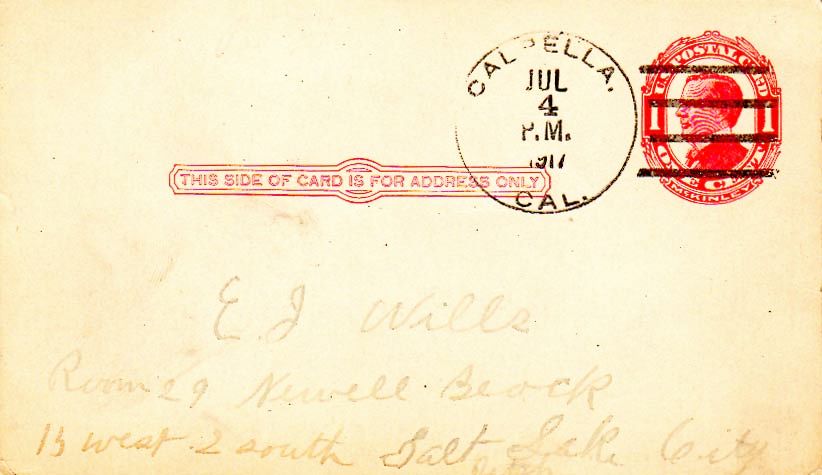 CALPELLA.
JUL
4
P.M.
1917
CAL.
U.S. POSTAL CARD
1 1
ONE CENT
McKINLEY
THIS SIDE OF CARD IS FOR ADDRESS ONLY
E. J Wills
Room 29 Newell Beock
15 west 2 south Salt Lake City
Utah